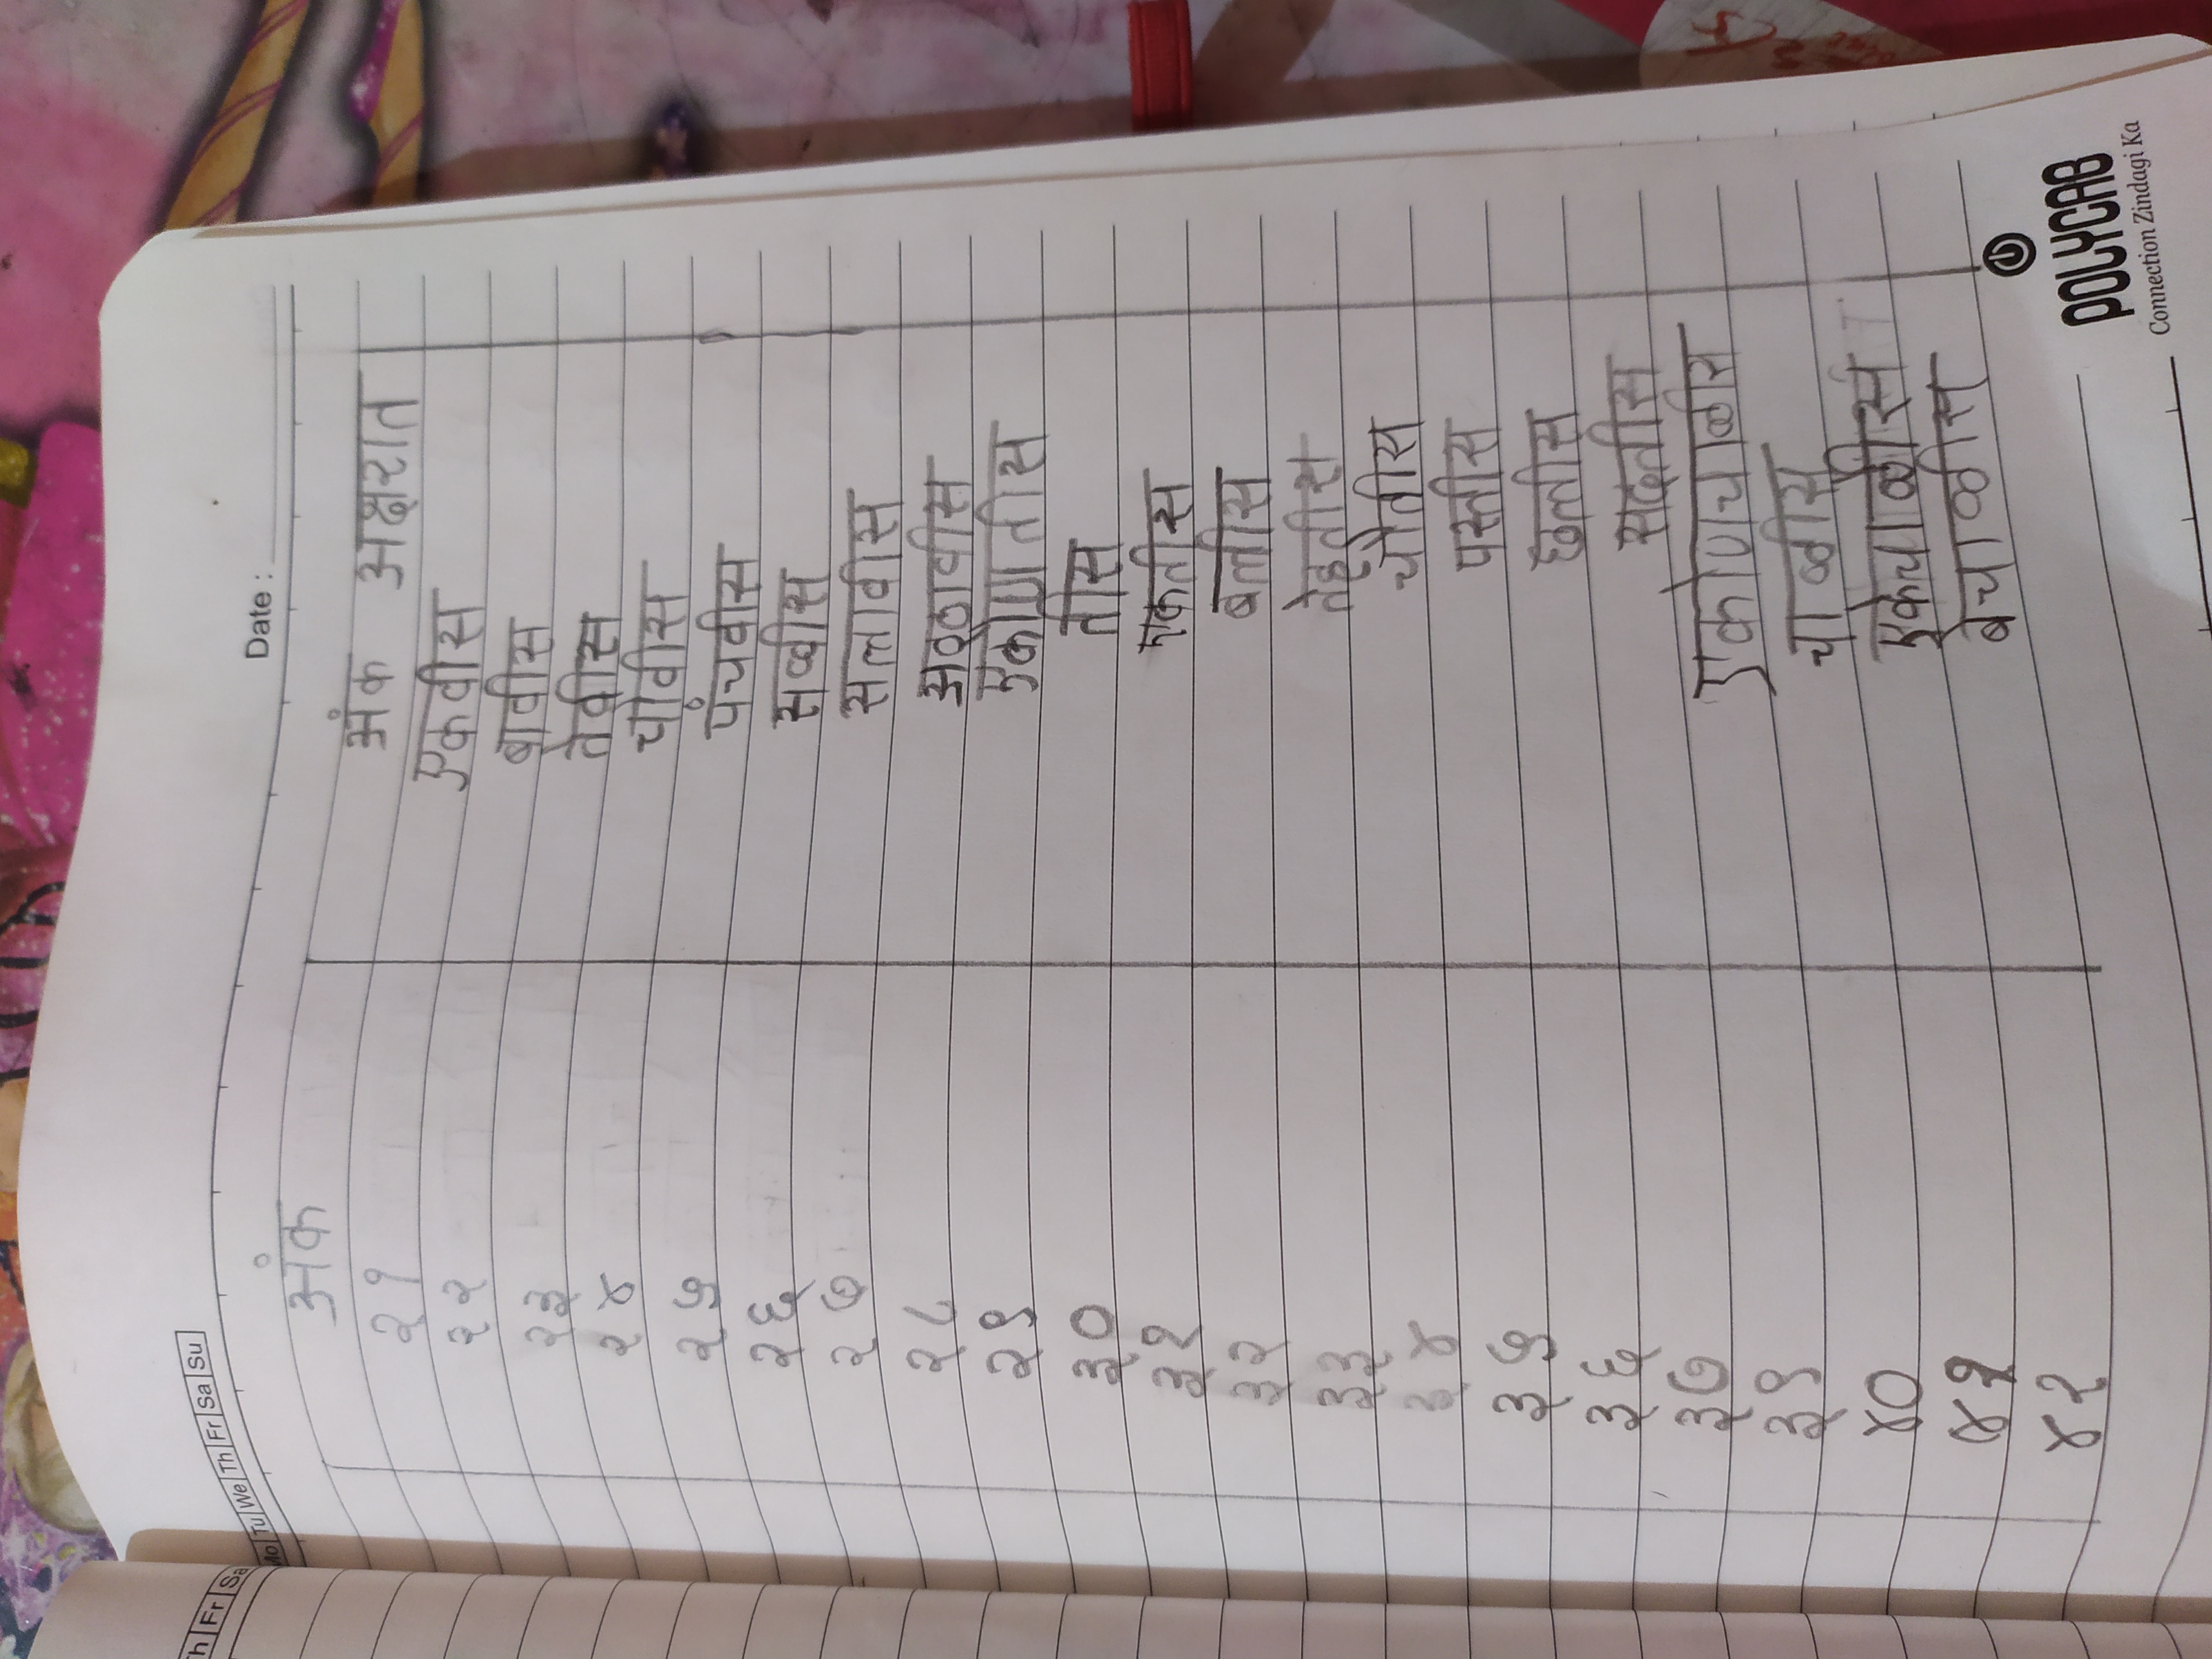 Th Fr Sa
Mo Tu We Th Fr Sa Su
Date :
अंक अंक अक्षरात
२१ एकवीस
२२ बावीस
२३ तेवीस
२४ चोवीस
२५ पंचवीस
२६ सव्वीस
२७ सत्तावीस
२८ अठ्ठावीस
२९ एकोणतीस
३० तीस
३१ एकतीस
३२ बत्तीस
३३ तेहतीस
३४ चौतीस
३५ पस्तीस
३६ छत्तीस
३७ सदतीस
३९ एकोणचाळीस
४० चाळीस
४१ एकेचाळीस
४२ बेचाळीस
POLYCAB
Connection Zindagi Ka